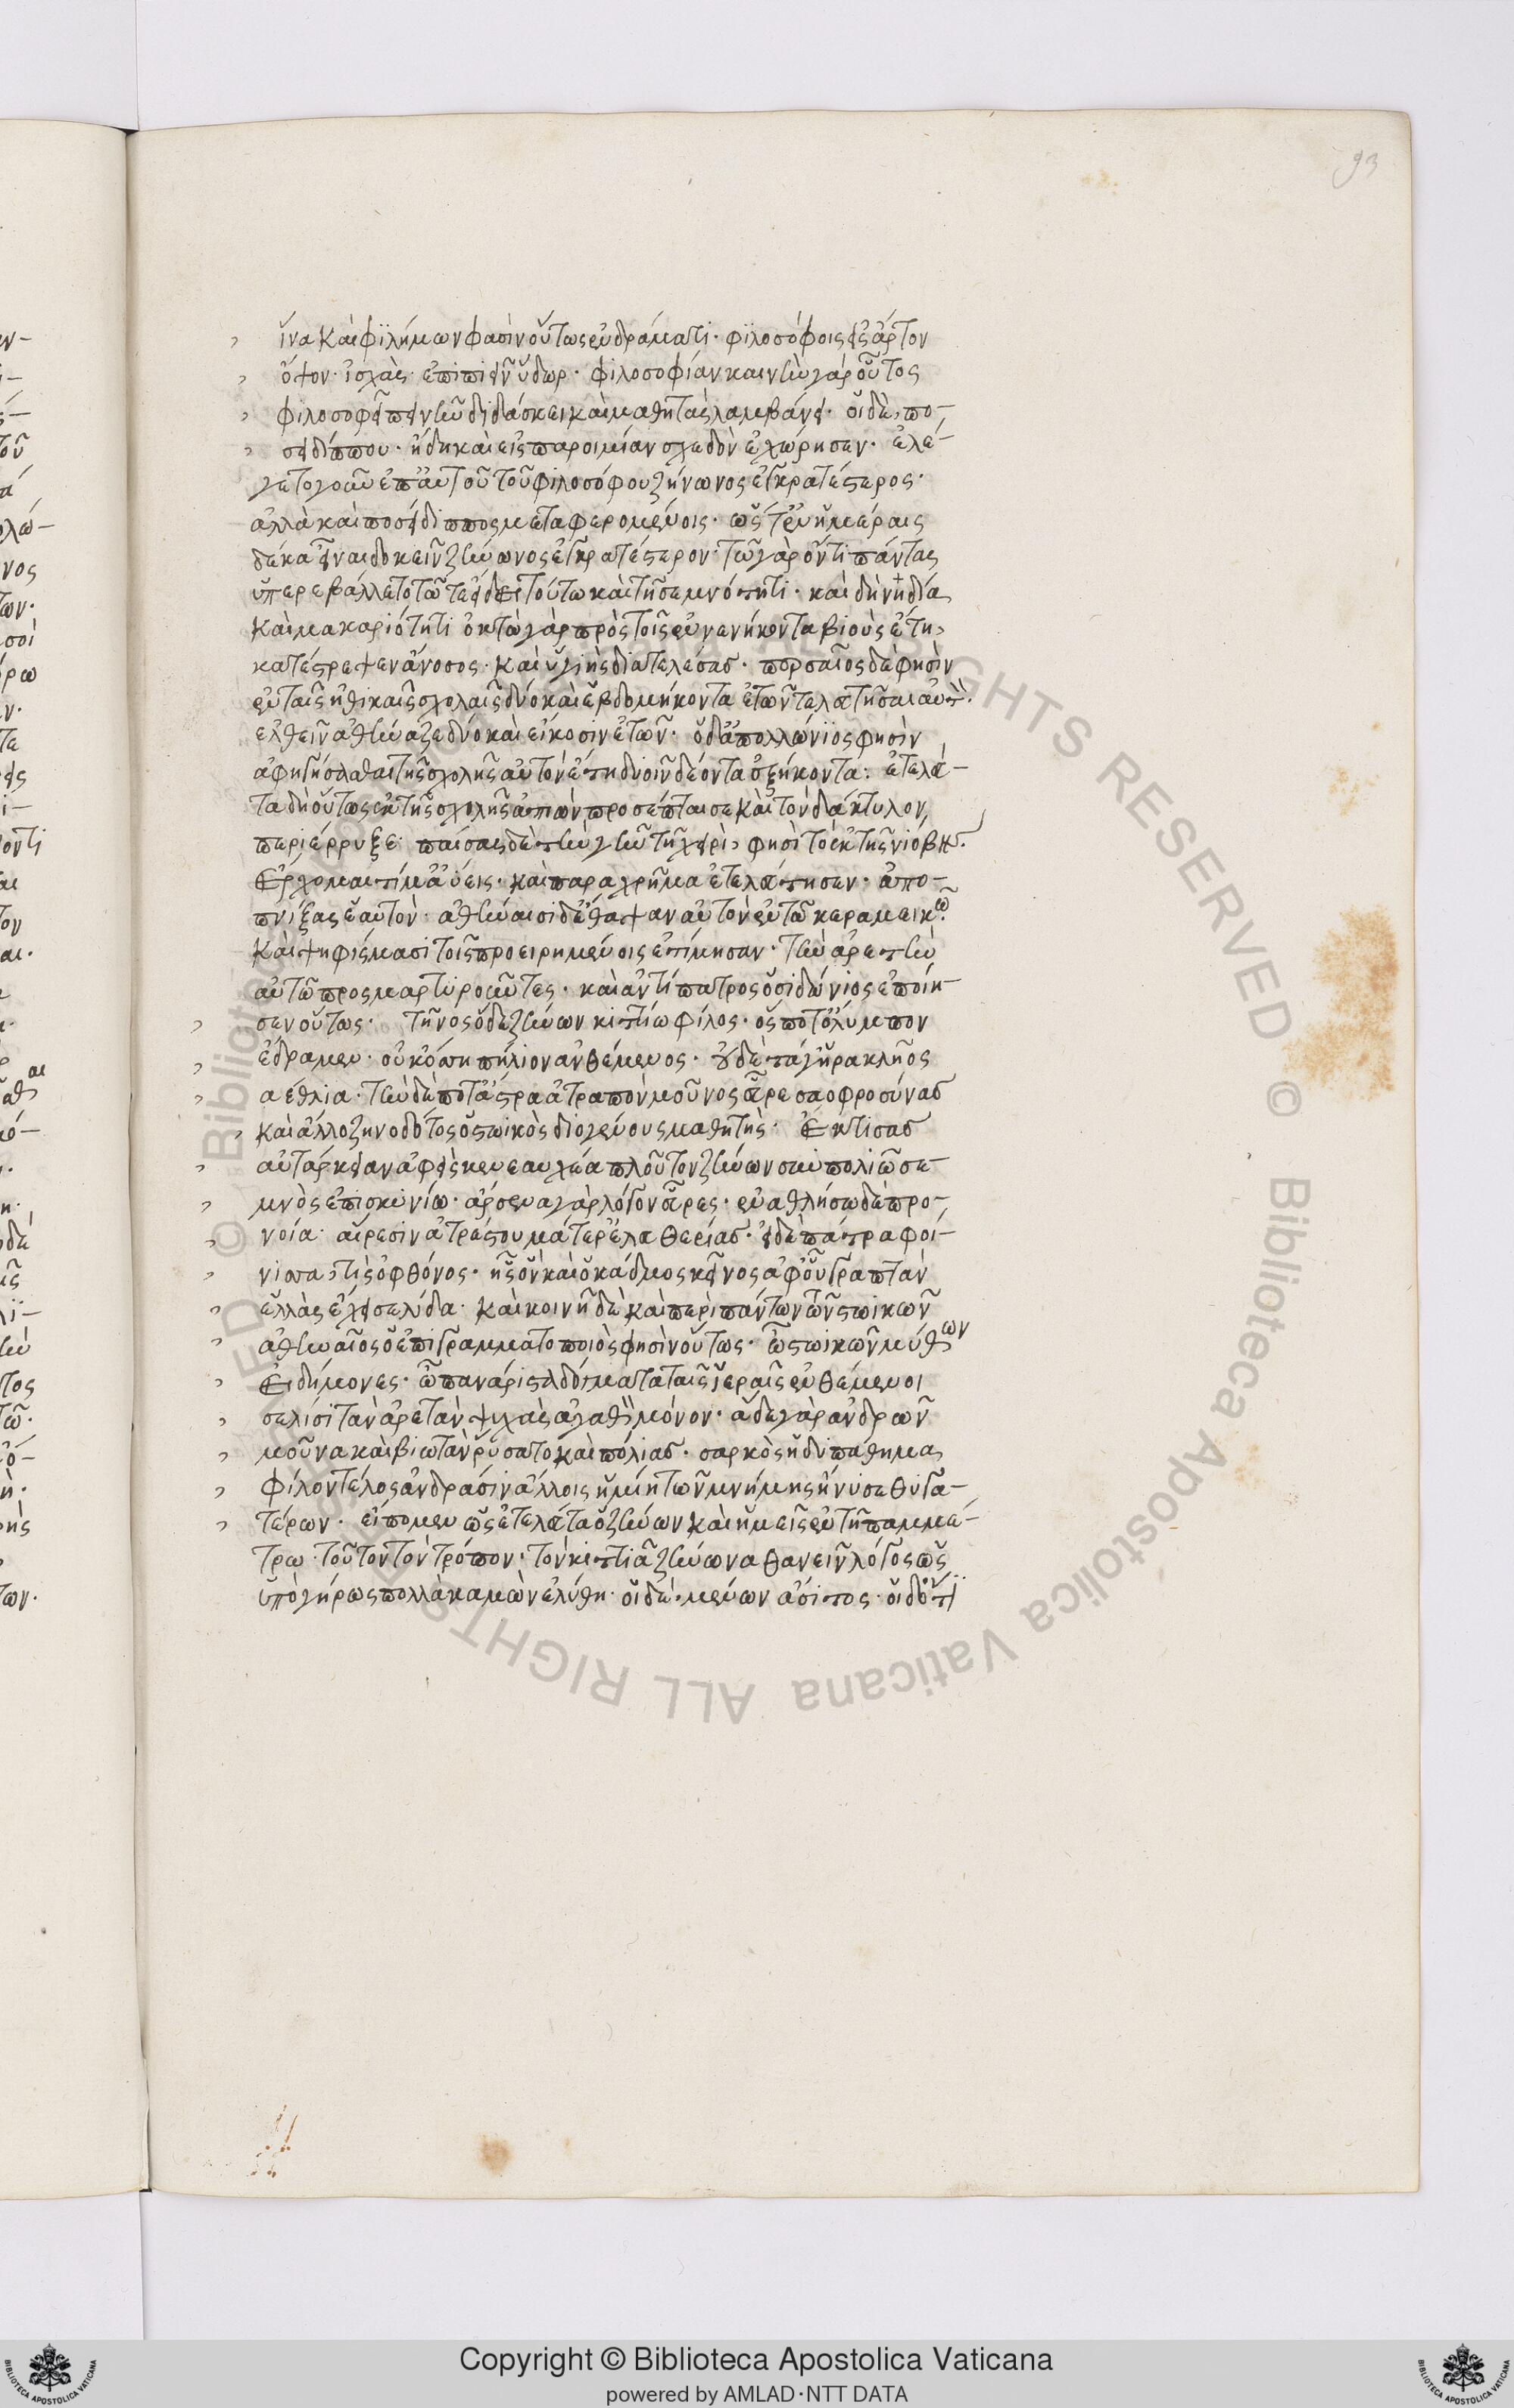 93
ἵνα καὶ φϊλήμων φασὶν οὕτως ἐν δράματι· φϊλοσόφοις εἷς ἄρτον
ὄψον· ἰσχὰς· ἐπιπιεῖν ὕδωρ· φιλοσοφίαν καινὴν γὰρ οὗτος
φιλοσοφεῖ πεινῆν διδάσκει καὶ μαθητὰς λαμβάνει· οἱ δὲ, πο-
σειδίππου· ἤδη καὶ εἰς παροιμίαν σχεδὸν ἐχώρησεν· ἐλέ-
γετο γοῦν ἐπ' αὐτοῦ τοῦ φιλοσόφου ζήνωνος ἐγκρατέστερος·
ἀλλὰ καὶ ποσείδιππος μεταφερομένοις· ὥστ' ἐν ἡμέραις
δέκα εἶναι δοκεῖν ζήνωνος ἐγκρατέστερον· τῶ γὰρ ὄντι πάντας
ὑπερεβάλλετο τῶ τε εἴδει τούτω καὶ τῆ σεμνότητι· καὶ δὴ νὴ δία
καὶ μακαριότητι ὀκτὼ γὰρ πρὸς τοῖς ἐνενήκοντα βιοὺς ἔτη,
κατέστρεψεν ἄνοσος· καὶ ὑγιὴς διατελέσας· περσαῖος δέ φησὶν
ἐν ταῖς ἠθικαῖς σχολαῖς δύο καὶ ἑβδομήκοντα ἐτῶν τελευτῆσαι αὐτὸ.
ἐλθεῖν ἀθήναζε δύο καὶ εἴκοσιν ἐτῶν· ὁ δ' ἀπολλώνϊος φησὶν
ἀφηγήσασθαι τῆς σχολῆς αὐτὸν ἔτη δυοῖν δέοντα ἑξήκοντα: ἐτελεύ-
τα δὴ οὕτως ἐκ τῆς σχολῆς ἀπιὼν προσέπταισε καὶ τὸν δάκτυλον,
περιέρρυξε· παίσας δὲ τὴν γῆν τῆ χειρὶ, φησὶ τὸ ἐκ τῆς νιόβης.
Ἔρχομαι τί μ' ἀύεις· καὶ παραχρῆμα ἐτελεύτησεν· ἀπο-
πνίξας ἑαυτόν· ἀθηναῖοι δ' ἔθαψαν αὐτὸν ἐν τῶ κεραμεικῶ.
καὶ ψηφίσμασι τοῖς προειρημένοις ἐτίμησαν· τὴν ἀρετὴν
αὐτῶ προσμαρτυροῦντες· καὶ ἀντίπατρος ὁ σιδώνιος ἐποίη-
σεν οὕτως· τῆνος ὅδε ζήνων κιττίω φίλος· ὅς ποτ' ὄλυμπον
ἔδραμεν· οὐκ ὄσση πήλιον ἀνθέμενος· οὐδὲ τά γ' ἡρακλῆος
ἀέθλια· τὴν δὲ ποτ' ἄστρα ἀτραπὸν μοῦνος εὗρε σαοφροσύνας
καὶ ἄλλο ζηνοδότος ὁ στωικὸς διογένους μαθητὴς· Ἔκτισας
αὐτάρκειαν ἀφεὶς κενεαυχέα πλοῦτον ζήνων σὺν πολιῶ σε-
μνὸς ἐπισκυνίω· ἄρσενα γὰρ λόγον εὗρες· ἐναθλήσω δὲ προ-
νοία· αἵρεσιν ἀτρέστου ματέρ' ἐλευθερίας· εἰ δὲ πάτρα φοί-
νισσα, τίς ὁ φθόνος· ἧς οὖν καὶ ὁ κάδμος κεῖνος ἀφ' οὗ γραπτὰν
ἑλλὰς ἔχει σελίδα· καὶ κοινῆ δὲ καὶ περὶ πάντων τῶν στωικῶν
ἀθηναῖος ὁ ἐπιγραμματοποιὸς φησὶν οὕτως· ὦ στωικῶν μύθων
Εἰδήμονες· ὦ πανάριστα δόγματα ταῖς ἱεραῖς ἐνθέμενοι
σελίσι τὰν ἀρετὰν ψυχᾶς ἀγαθὸν μόνον· ἅδε γὰρ ἀνδρῶν
μοῦνα καὶ βιοτὰν ῥύσατο καὶ πόλιας· σαρκὸς ἡδυπάθημα
φίλον τέλος ἀνδράσιν ἄλλοις ἡ μίη τῶν μνήμης ἤνυσε θυγα-
τέρων· εἴπομεν ὡς ἐτελεύτα ὁ ζήνων καὶ ἡμεῖς ἐν τῆ παμμέ-
τρω τοῦτον τὸν τρόπον· τὸν κιττιᾶ ζήνωνα θανεῖν λόγος ὡς
ὑπὸ γήρως πολλὰ καμὼν ἐλύθη· οἱ δὲ· μένων ἄσιτος· οἱ δ' ὅτι
Copyright © Biblioteca Apostolica Vaticana
powered by AMLAD·NTT DATA